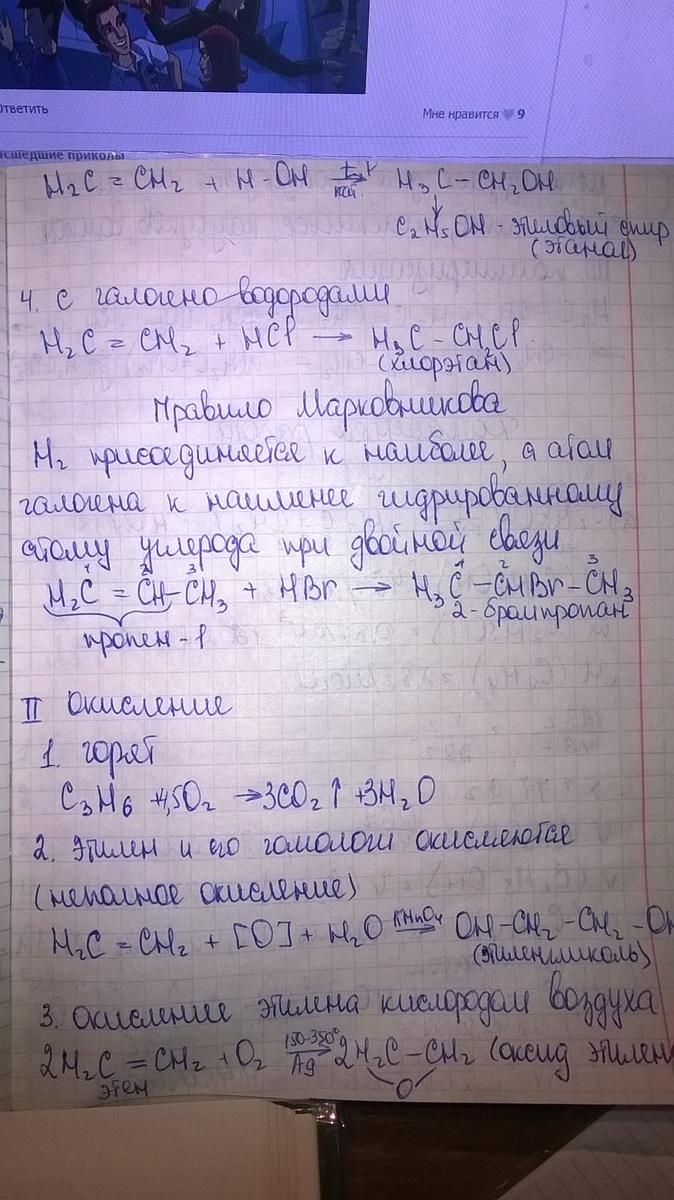 Ответить
Мне нравится 9
сшедшие приколы
H₂C = CH₂ + H-OH →(t, кат.) H₃C - CH₂OH
↓
C₂H₅OH - этиловый спир
(этанол)
4. с галогено-водородами
H₂C = CH₂ + HCl → H₃C - CH₂Cl.
(хлорэтан)
Правило Марковникова
H₂ присоединяется к наиболее, а атом
галогена к наименее гидрированному
атому углерода при двойной связи
1 2 3 1 2 3
H₂C = CH-CH₃ + HBr → H₃C - CHBr - CH₃
2-бромпропан
пропен-1
II Окисление
1. горят
C₃H₆ + 4,5O₂ → 3CO₂↑ + 3H₂O
2. Этилен и его гомологи окисляются
(неполное окисление)
H₂C = CH₂ + [O] + H₂O →(KMnO₄) OH-CH₂-CH₂-OH
(этиленгликоль)
3. Окисление этилена кислородом воздуха
2H₂C = CH₂ + O₂ →(150-350°, Ag) 2H₂C - CH₂ (оксид этилен
этен
O